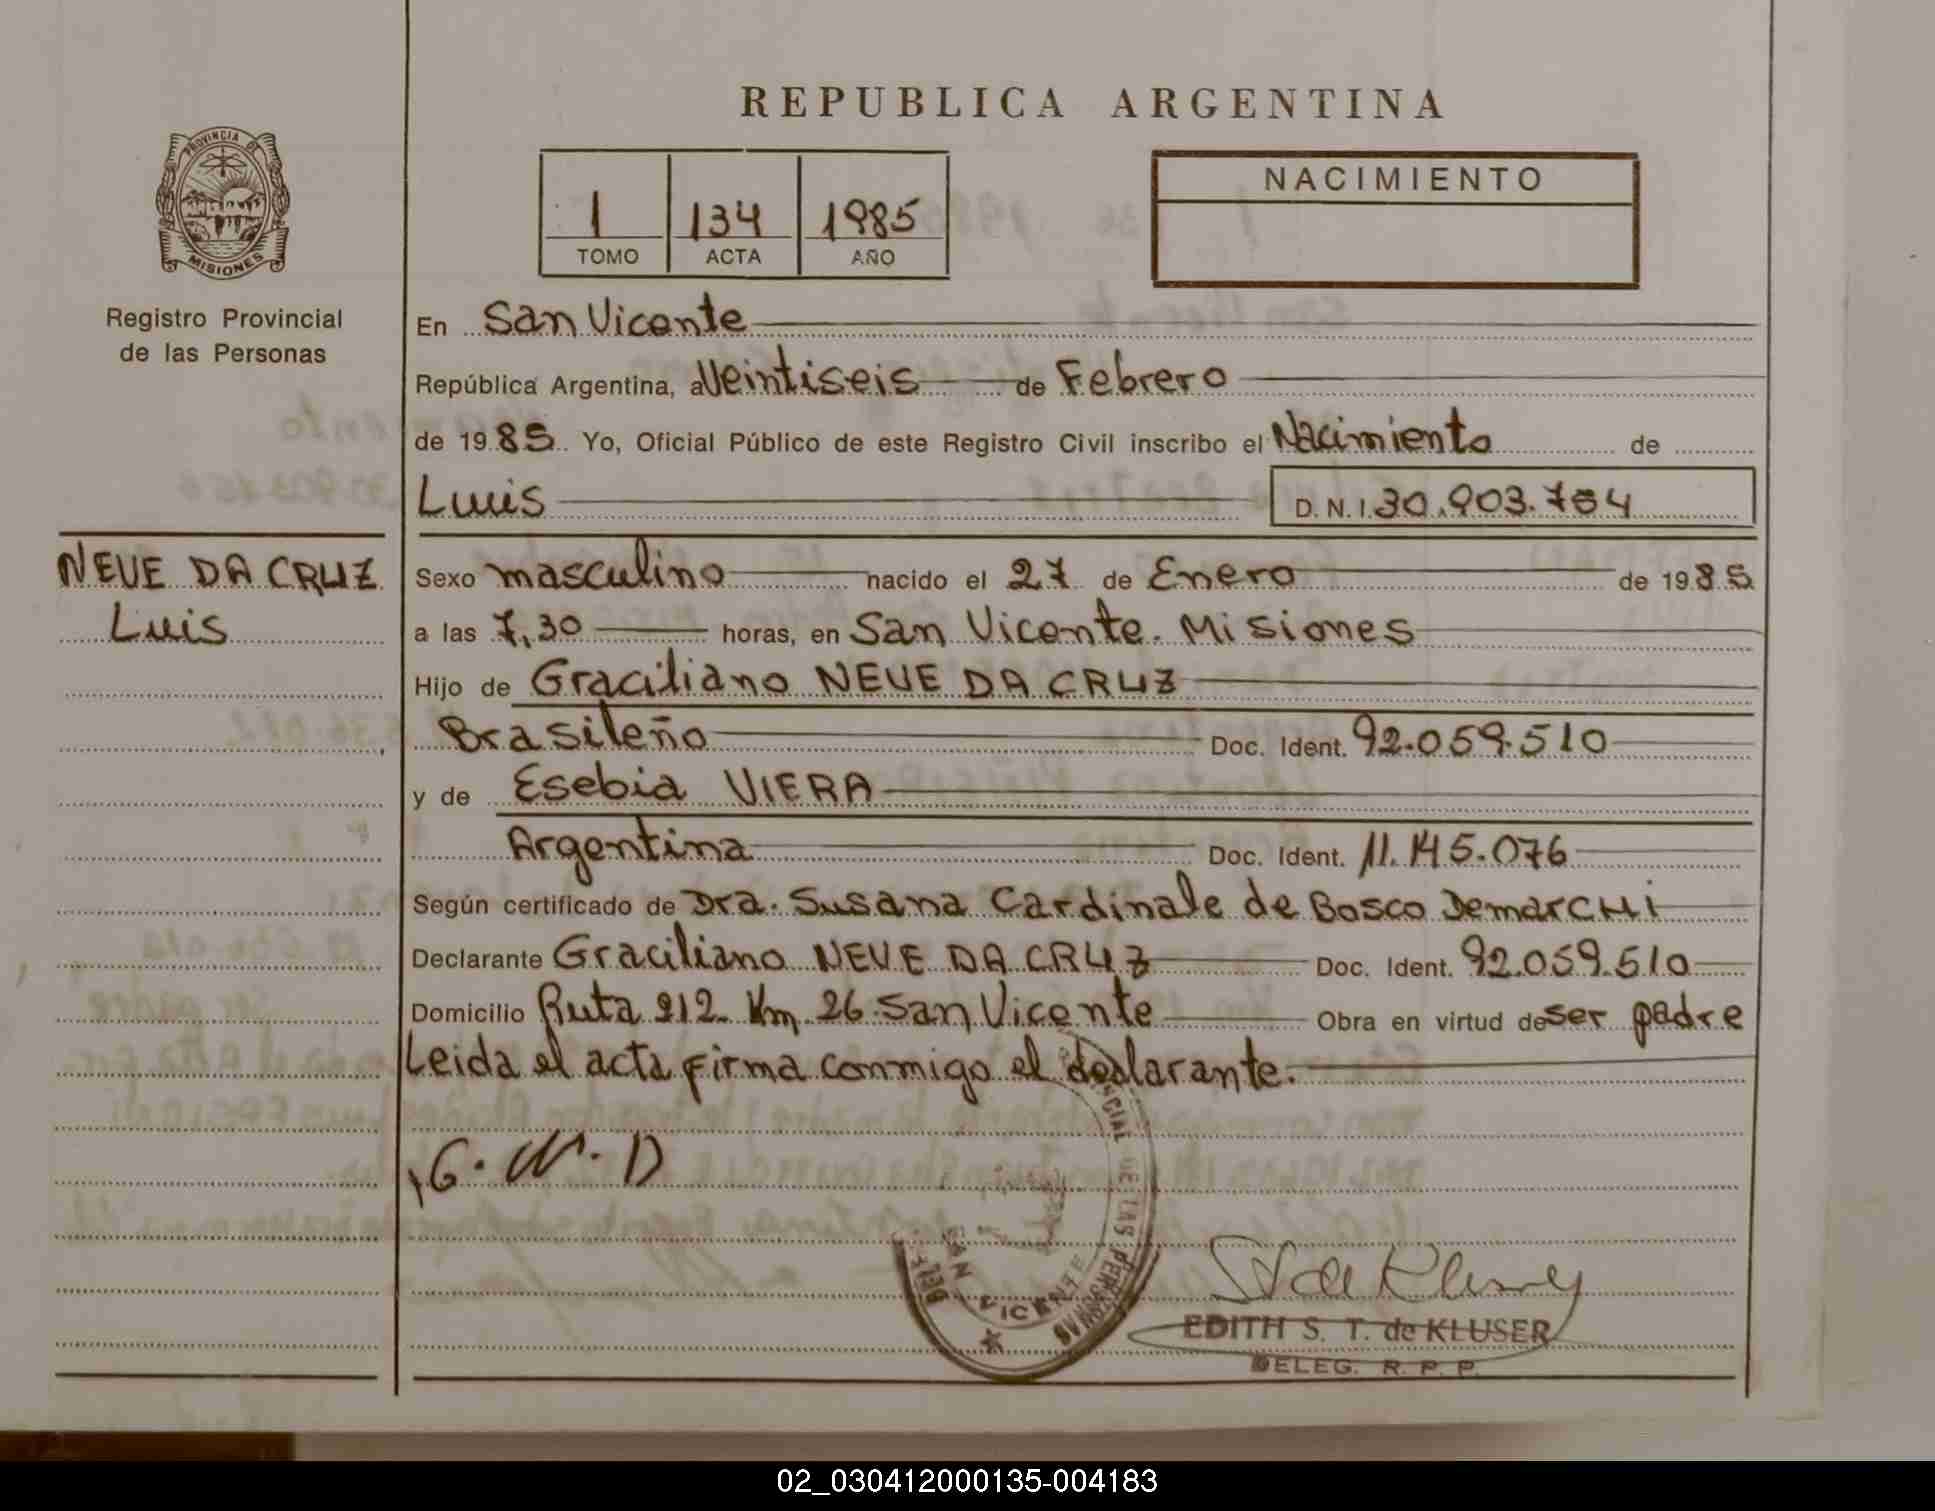 REPUBLICA ARGENTINA
PROVINCIA DE
MISIONES
Registro Provincial
de las Personas
1 134 1985
TOMO ACTA AÑO
NACIMIENTO
En San Vicente
República Argentina, a Veintiseis de Febrero
de 1985 Yo, Oficial Público de este Registro Civil inscribo el Nacimiento de
Luis D. N. I. 30.903.754
NEVE DA CRUZ
Luis
Sexo masculino nacido el 27 de Enero de 1985
a las 7,30 horas, en San Vicente. Misiones
Hijo de Graciliano NEVE DA CRUZ
Brasileño Doc. Ident. 92.059.510
y de Esebia VIERA
Argentina Doc. Ident. 11.145.076
Según certificado de Dra. Susana Cardinale de Bosco Demarchi
Declarante Graciliano NEVE DA CRUZ Doc. Ident. 92.059.510
Domicilio Ruta 212 Km 26 San Vicente Obra en virtud de ser padre
Leida el acta firma conmigo el declarante.
G. N. D
DE LAS PERSONAS
SAN VICENTE
EDITH S. T. de KLUSER
DELEG. R. P. P.
02_030412000135-004183